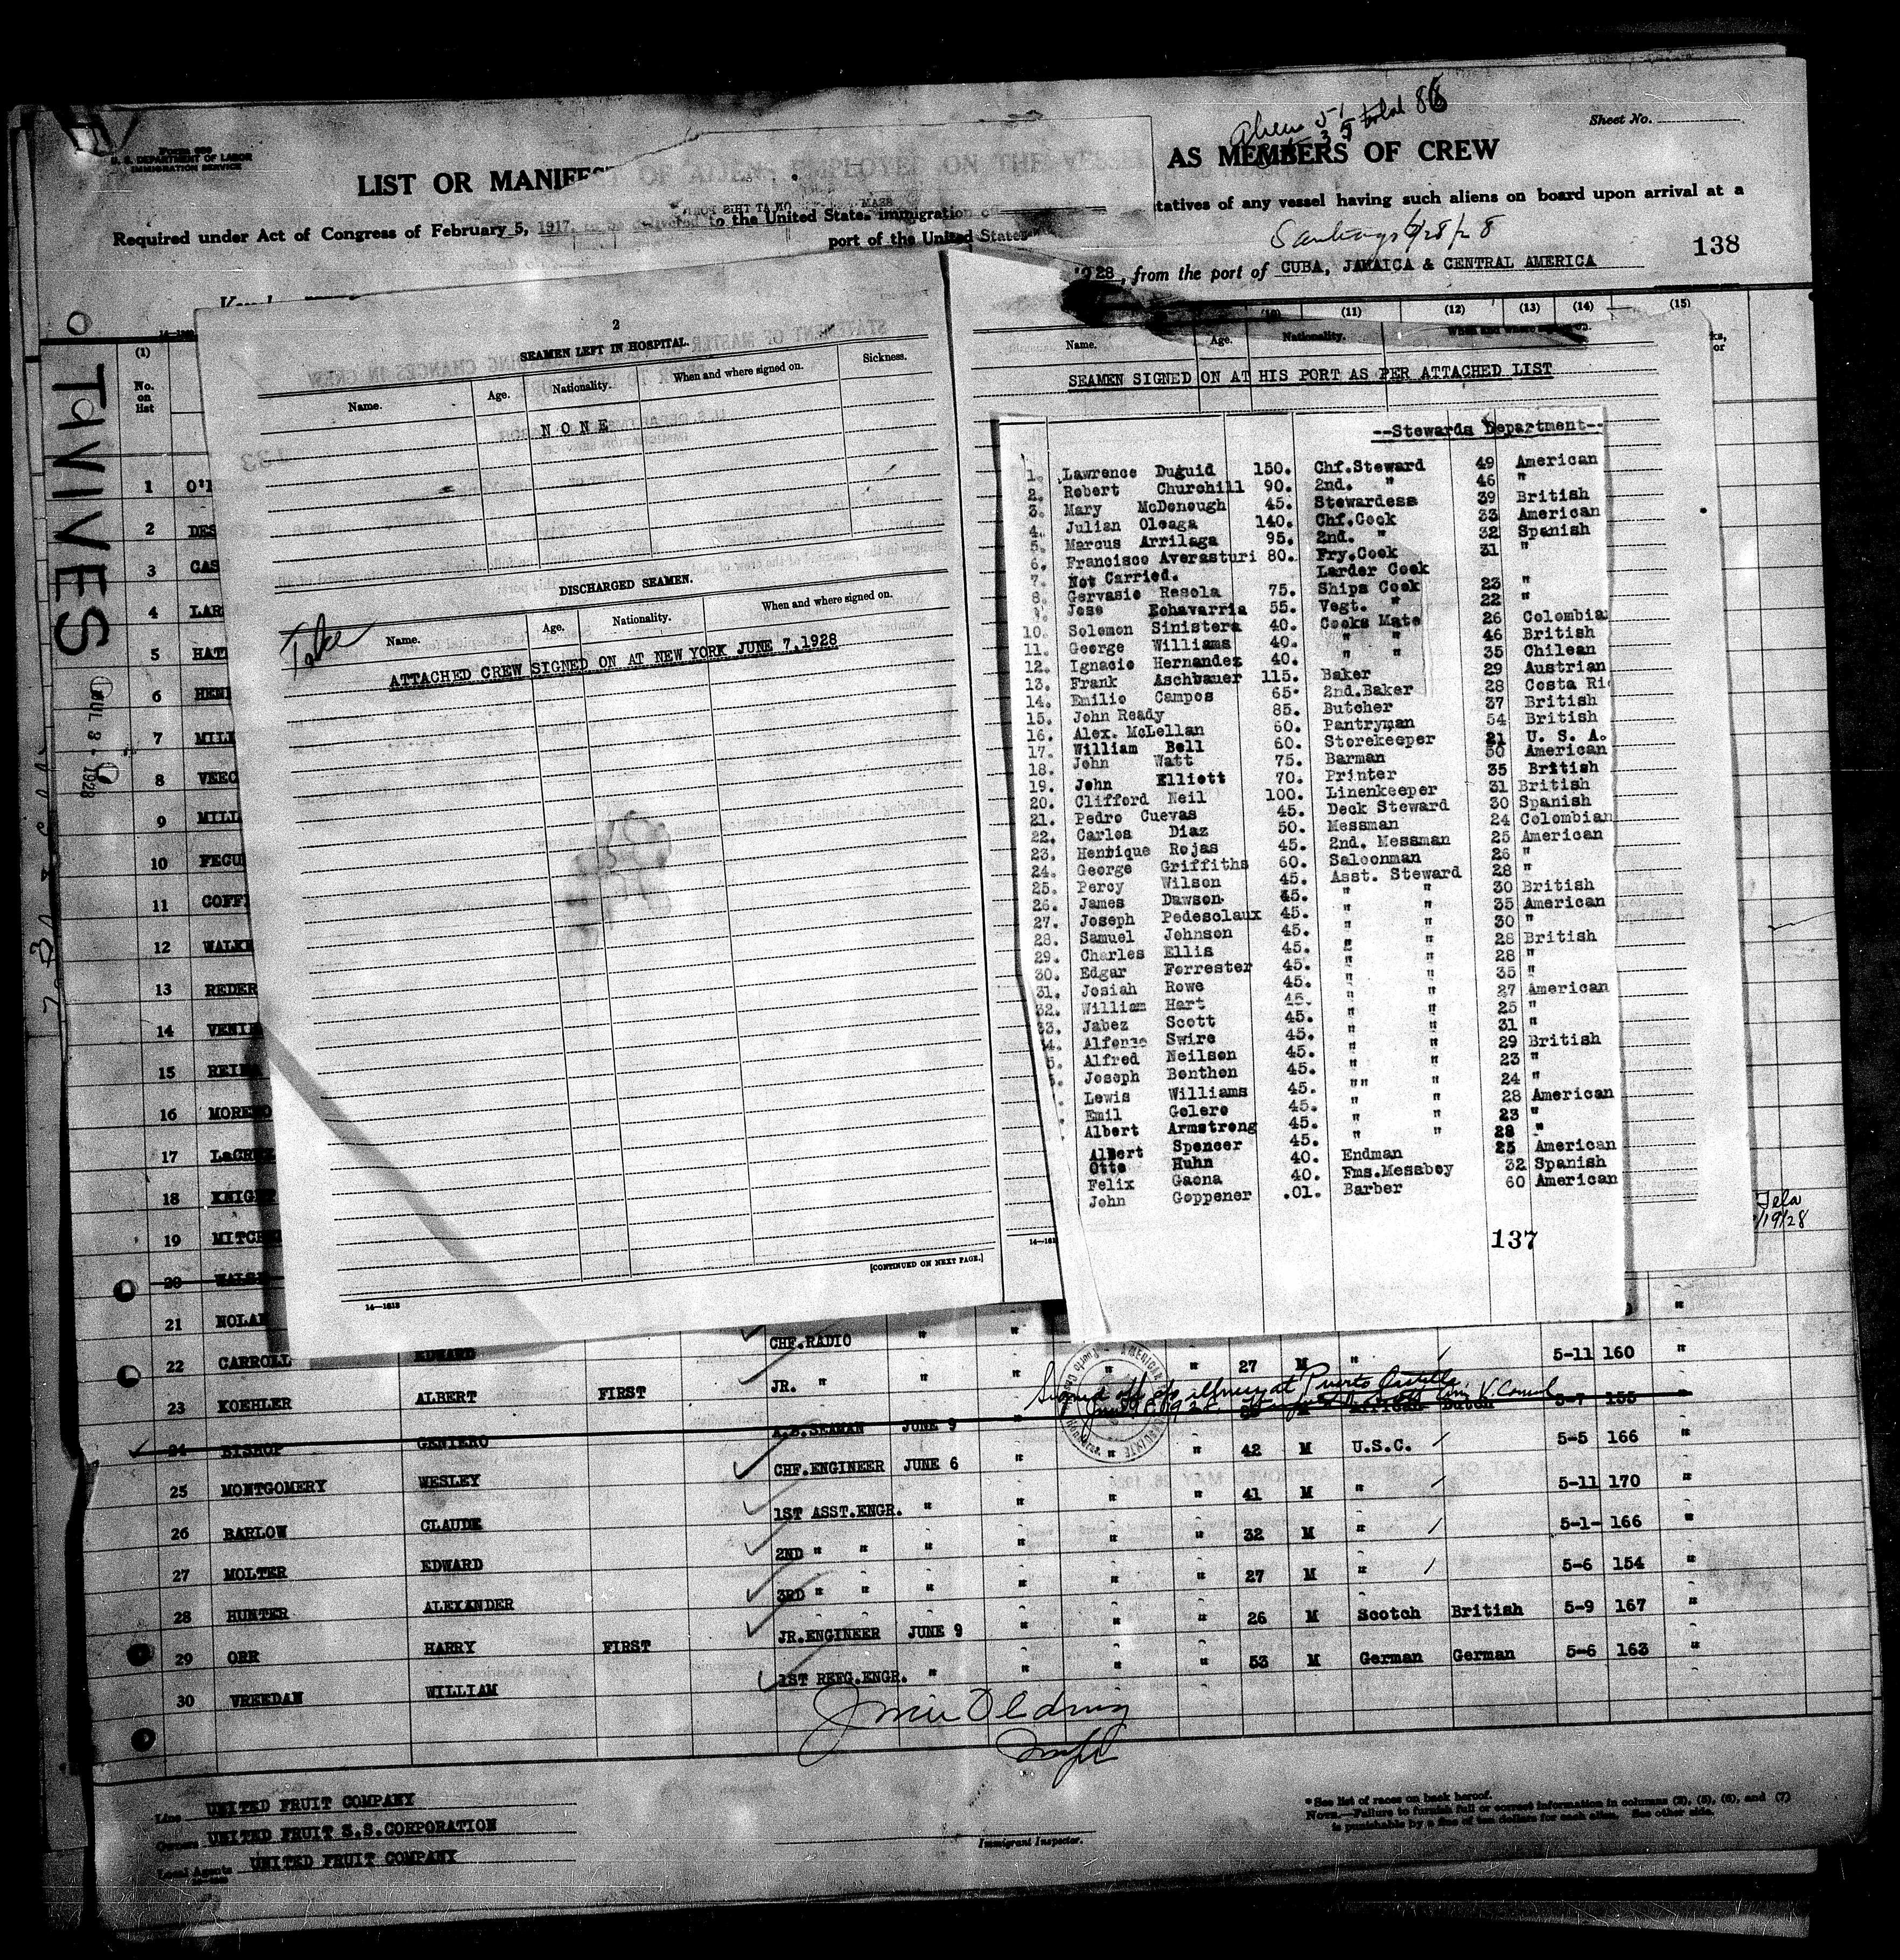 Aliens 51 total 86
35
Sheet No.
FORM 689
U. S. DEPARTMENT OF LABOR
IMMIGRATION SERVICE
LIST OR MANIFEST AS MEMBERS OF CREW
Required under Act of Congress of February 5, 1917, to the United States immigration tatives of any vessel having such aliens on board upon arrival at a
port of the United States
Santiago 6/28/28
138
1928, from the port of CUBA, JAMAICA & CENTRAL AMERICA
TIVIVES
JUL 3 - 1928
(1) (11) (12) (13) (14) (15)
No. on list
2
SEAMEN LEFT IN HOSPITAL.
Name. Age. Nationality. When and where signed on. Sickness.
NONE
DISCHARGED SEAMEN.
Take
Name. Age. Nationality. When and where signed on.
ATTACHED CREW SIGNED ON AT NEW YORK JUNE 7,1928
[CONTINUED ON NEXT PAGE.]
14—1613
Name. Age. Nationality. When and where signed on.
SEAMEN SIGNED ON AT HIS PORT AS PER ATTACHED LIST
--Stewards Department--
1. Lawrence Duguid 150. Chf.Steward 49 American
2. Robert Churchill 90. 2nd. " 46 "
3. Mary McDonough 45. Stewardess 39 British
4. Julian Oleaga 140. Chf.Cook 33 American
5. Marcus Arrilaga 95. 2nd. " 32 Spanish
6. Francisco Averasturi 80. Fry.Cook 31 "
7. Not Carried. Larder Cook
8. Gervasio Resola 75. Ships Cook 23 "
9. Jose Echavarria 55. Vegt. " 22 "
10. Solomon Sinistera 40. Cooks Mate 26 Colombia
11. George Williams 40. " " 46 British
12. Ignacio Hernandez 40. " " 35 Chilean
13. Frank Aschbauer 115. Baker 29 Austrian
14. Emilio Campos 65. 2nd.Baker 28 Costa Ri
15. John Ready 85. Butcher 37 British
16. Alex. McLellan 60. Pantryman 54 British
17. William Bell 60. Storekeeper 21 U. S. A.
18. John Watt 75. Barman 50 American
19. John Elliett 70. Printer 35 British
20. Clifford Neil 100. Linenkeeper 31 British
21. Pedro Cuevas 45. Deck Steward 30 Spanish
22. Carlos Diaz 50. Messman 24 Colombian
23. Henrique Rojas 45. 2nd. Messman 25 American
24. George Griffiths 60. Saloonman 26 "
25. Percy Wilson 45. Asst. Steward 28 "
26. James Dawson 45. " " 30 British
27. Joseph Pedesclaux 45. " " 35 American
28. Samuel Johnson 45. " " 30 "
29. Charles Ellis 45. " " 28 British
30. Edgar Forrester 45. " " 28 "
31. Josiah Rowe 45. " " 35 "
32. William Hart 45. " " 27 American
33. Jabez Scott 45. " " 25 "
4. Alfonso Swire 45. " " 31 "
5. Alfred Neilson 45. " " 29 British
Joseph Benthen 45. " " 23 "
Lewis Williams 45. "" " 24 "
Emil Golere 45. " " 28 American
Albert Armstrong 45. " " 23 "
Albert Spencer 45. " " 28 "
Otto Huhn 40. Endman 25 American
Felix Gaona 40. Fms.Messboy 32 Spanish
John Goppener .01. Barber 60 American
137
1 O'
2 DES
3 CAS
4 LAR
5 HAT
6 HEN
7 MILL
8 VEEC
9 MILL
10 FEGU
11 COFF
12 WALKE
13 REDER
14 VENI
15 REI
16 MORENO
17 LaCRU
18 KNIGHT
19 MITCHE
Tela
/19/28
20 WALS
21 NOLAN
22 CARROLL EDWARD CHF.RADIO " "
23 KOEHLER ALBERT FIRST JR. " " " " 27 M " 5-11 160 "
Signed off a/c illness at Puerto Castilla
24 BISHOP GENIERO A.B.SEAMAN JUNE 9 " M African Dutch 5-7 155 "
25 MONTGOMERY WESLEY CHF.ENGINEER JUNE 6 " " " 42 M U.S.C. 5-5 166 "
26 BARLOW CLAUDE 1ST ASST.ENGR. " " " " 41 M " 5-11 170 "
27 MOLTER EDWARD 2ND " " " " " " 32 M " 5-1- 166 "
28 HUNTER ALEXANDER 3RD " " " " " " 27 M " 5-6 154 "
29 ORR HARRY FIRST JR.ENGINEER JUNE 9 " " " 26 M Scotch British 5-9 167 "
30 VREEDAN WILLIAM 1ST REFG.ENGR. " " " " 53 M German German 5-6 163 "
Line UNITED FRUIT COMPANY
Owners UNITED FRUIT S.S.CORPORATION
Local Agents UNITED FRUIT COMPANY
Immigrant Inspector.
* See list of races on back hereof.
NOTE.—Failure to furnish full or correct information in columns (2), (5), (6), and (7)
is punishable by a fine of ten dollars for each alien. See other side.